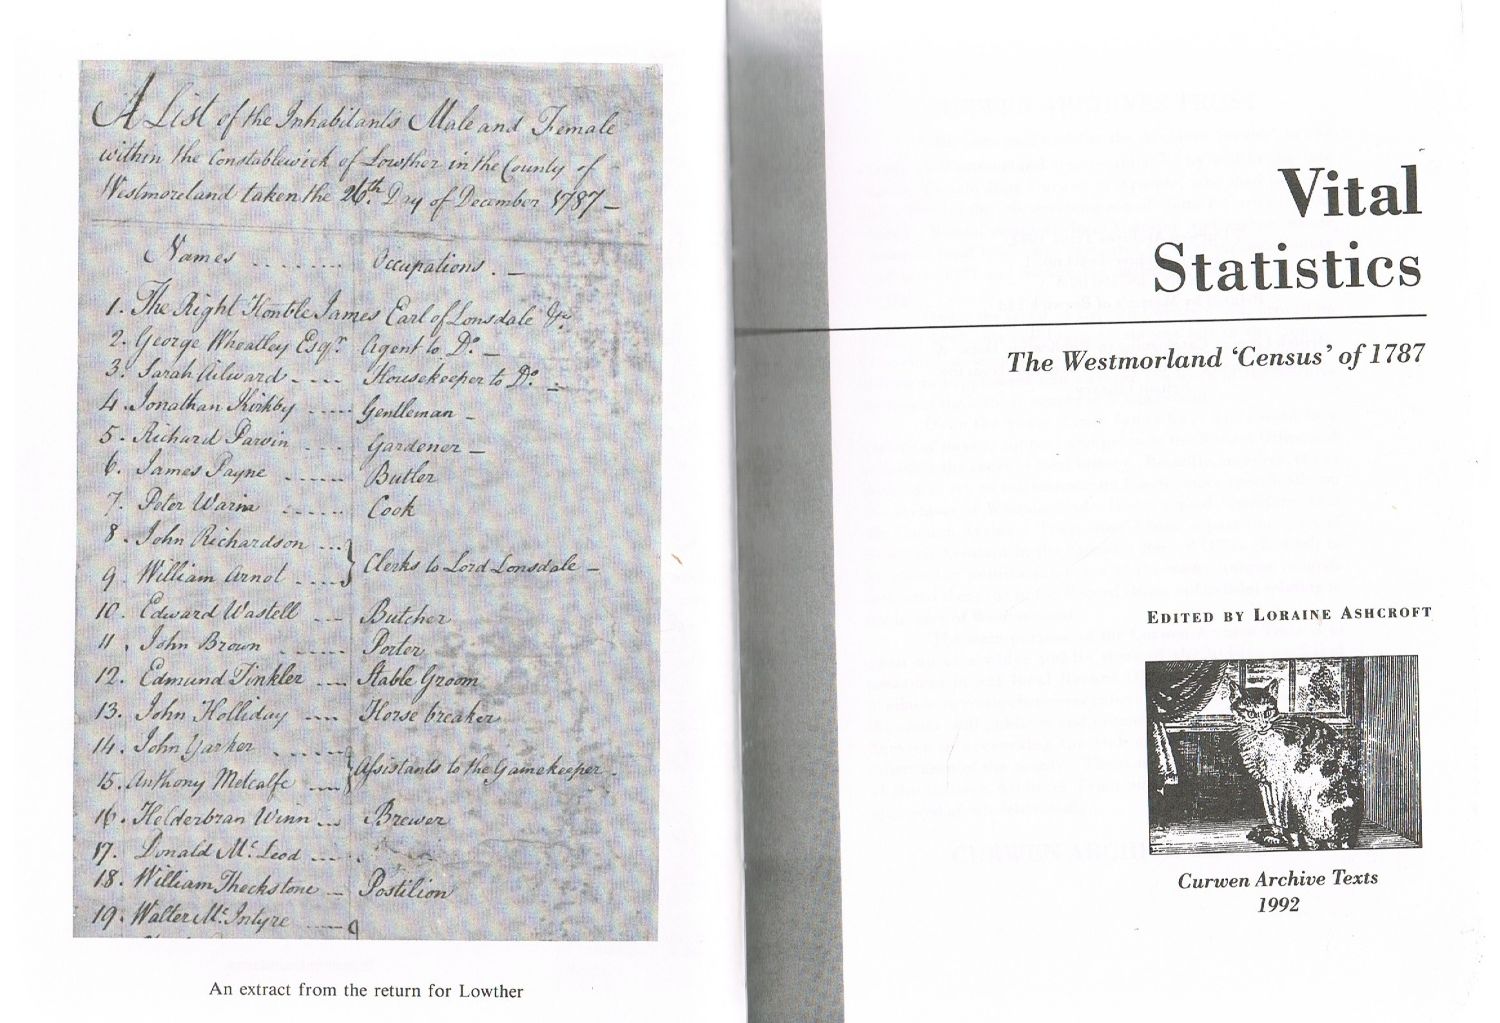 A List of the Inhabitants Male and Female
within the Constablewick of Lowther in the County of
Westmoreland taken the 26th. Day of December 1787 –
Names ........ Occupations . –
1. The Right Honble James Earl of Lonsdale &c.
2. George Wheatley Esqr. Agent to Do. –
3. Sarah Ailward .... Housekeeper to Do. –
4. Jonathan Kirkby ..... Gentleman –
5. Richard Parvin .... Gardener –
6. James Payne ...... Butler
7. Peter ...... Cook
8. John Richardson ...
9. William Arnot ..... } Clerks to Lord Lonsdale –
10. Edward Wastell ... Butcher
11. John Brown ....... Porter
12. Edmund Tinkler .... Stable Groom
13. John Holliday .... Horse breaker
14. John Yarker .......
15. Anthony Metcalfe .... } Assistants to the Gamekeeper .
16. Helderbran Winn ... Brewer
17. Donald Mc. Leod ....
18. William Theckstone – Postilion
19. Walter Mc. Intyre ....
An extract from the return for Lowther
Vital
Statistics
The Westmorland ‘Census’ of 1787
EDITED BY LORAINE ASHCROFT
Curwen Archive Texts
1992